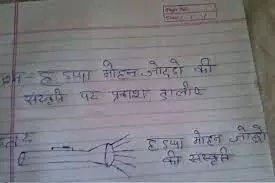 प्रश्न - हडप्पा मोहन जोदडो की
संस्कृति पर प्रकाश डालीए
उत्तर
हडप्पा मोहन जोदडो
की संस्कृति